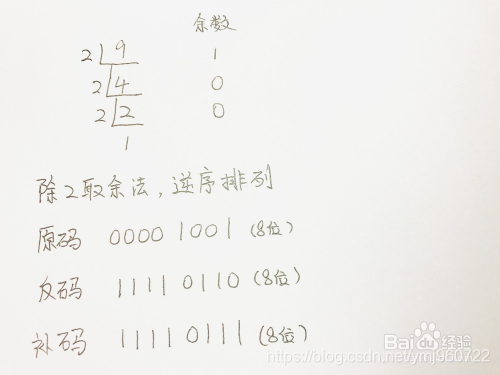 余数
2 9 1
2 4 0
2 2 0
1
除2取余法,逆序排列
原码 0000 1001 (8位)
反码 1111 0110 (8位)
补码 1111 0111 (8位)
Bai 经验
https://blog.csdn.net/ymj960722